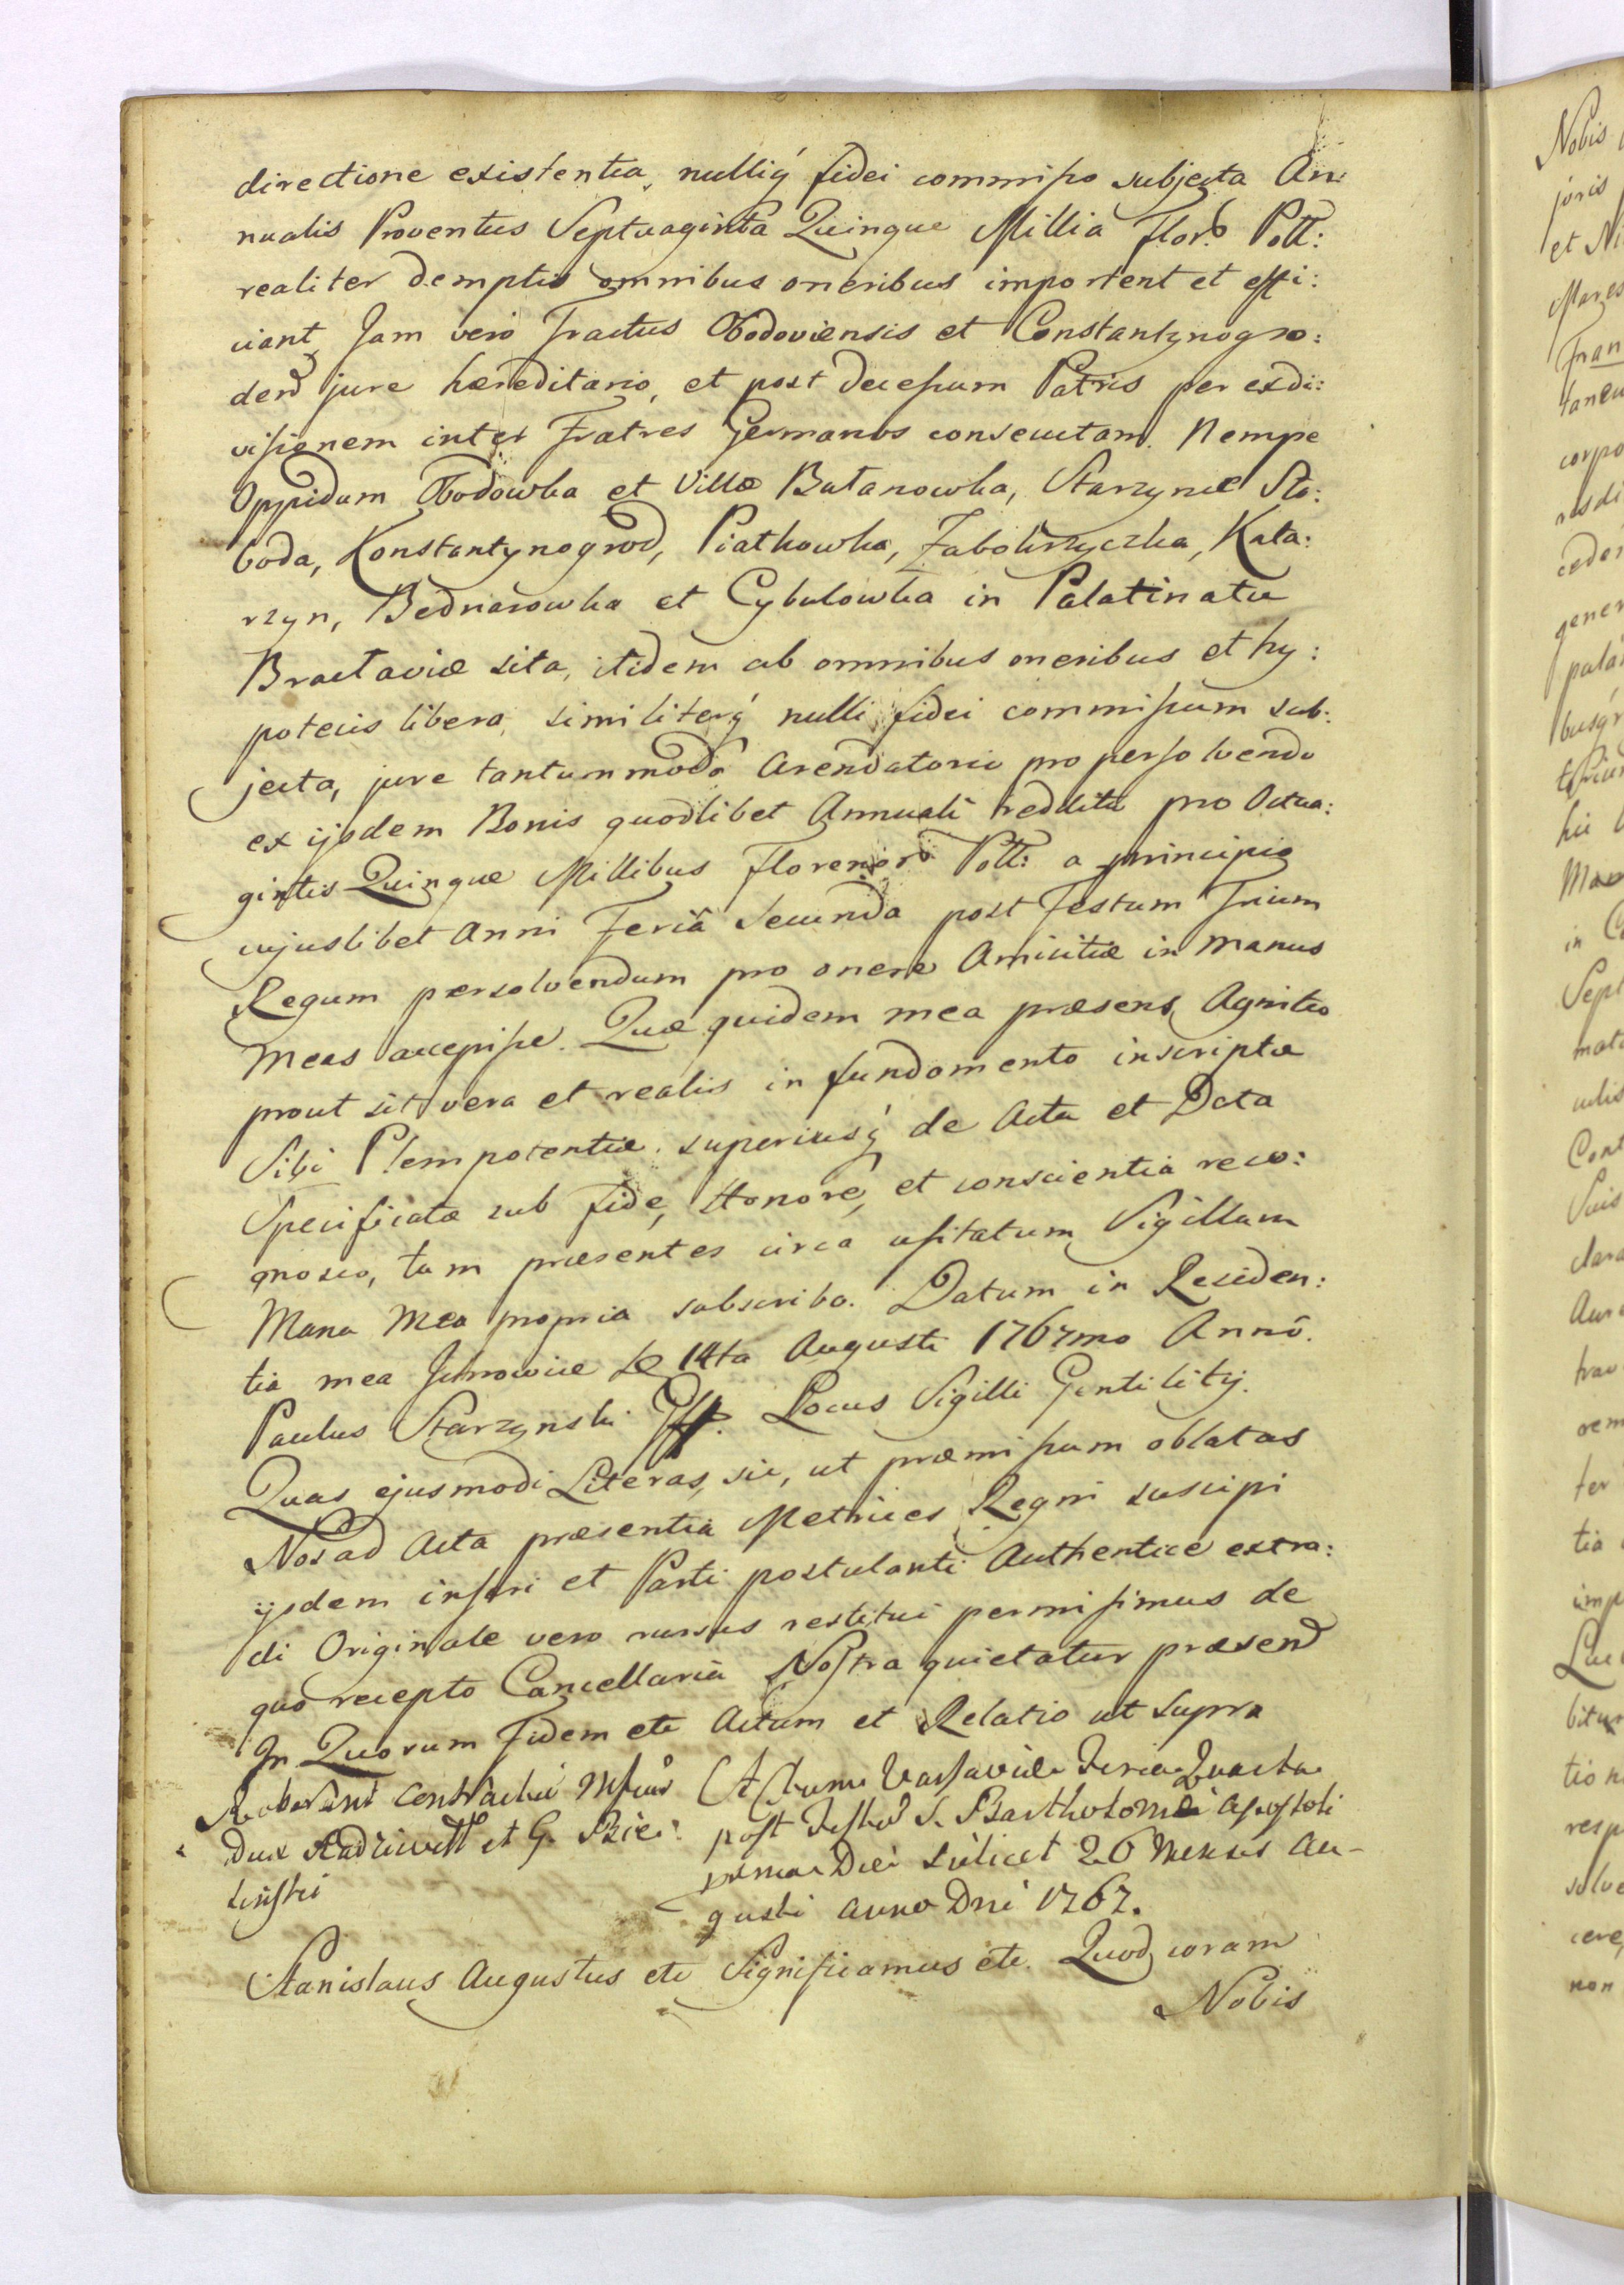 directione existentia, nulliq́ fidei commisso subjecta An:
nualis Proventus Septuaginta Quinque Millia Flor. Poll:
realiter demptis omnibus oneribus important et effi:
ciant, Jam vero Tractus Obodoviensis et Constantynogro:
den jure hæreditario, et post decessum Patris per exdi:
visionem inter Fratres Germanos consecutam. Nempe
Oppidum Obodowka et Villæ Batanowka, Starzynie Sło:
boda, Konstantynogrod, Piatkowka, Zabokrzyczka, Kata:
rzyn, Bednarowka et Cybulowka in Palatinatu
Bractaviæ sita, itidem ab omnibus oneribus et hy:
potecis libera, similiterq́ nulli fidei commissum sub:
jecta, jure tantummodo Arendatorio pro persolvendo
ex ijsdem Bonis quodlibet Annuali redditu pro Octua:
gintis Quinque Millibus Florenor Poll: a principio
cujuslibet Anni Feriâ Secunda post Festum Trium
Regum persolvendum pro onere Amicitiæ in Manus
Meas accepisse. Quæ quidem mea præsens Agnitio
prout sit vera et realis in fundamento inscriptæ
Sibi Plempotentiæ superiusq́ de Actu et Data
Specificatæ sub fide, Honore, et conscientia reco:
gnosco, tum præsentes circa usitatum Sigillum
Manu Mea propria subscribo. Datum in Residen:
tia mea 14ta Augusti 1767mo Annô.
Paulus Starzynski Locus Sigilli Gentilitij.
Quas ejusmodi Literas, sic, ut præmissum oblatas
Nos ad Acta præsentia Metrices Regni suscipi
ijsdem inseri et Parti postulanti Authentice extra:
di Originale vero rursus restitui permisimus de
quo recepto Cancellaria Nostra quietatur præsen
In Quorum Fidem etc Actum et Relatio ut Supra
Roborant Contractus
Dux Radziwill et G. Bie:
linski
Actum Varsaviæ Feria Quarta
post Festum S. Bartholomæi Apostoli
prima Die scilicet 26 Mensis Au-
gusti Anno Dni 1767.
Stanislaus Augustus etc Significamus etc. Quod coram
Nobis
Nobis
juris
et Ni
Fran
taneu
corpo
cedon
gener
pala
hic
in C
Sept
mat
Cont
Suis
clara
rem
ter
tia
imp
bitur
tio n
resp
solve
cere,
non